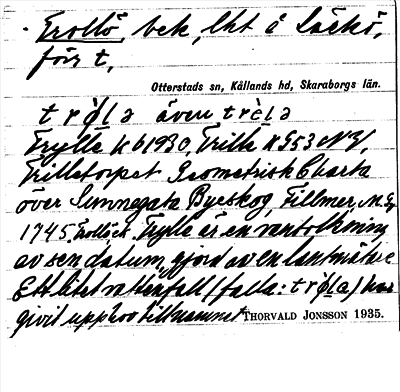 Trollö bek, lht å Läckö,
förr t,
Otterstads sn, Kållands hd, Skaraborgs län.
t r ø̀ l ə även t r è l ə
Trylle kb 1930, Trille
Trilletorpet Geometrisk Charta
över Sunnegata Byeskog, Fillmer, M. G.
1745. Trylle är en vantolkning
av sen datum, gjord av en lantmätare
Ett litet vattenfall (falla: t r ø̀ l a) har
givit upphov till namnet
THORVALD JONSSON 1935.